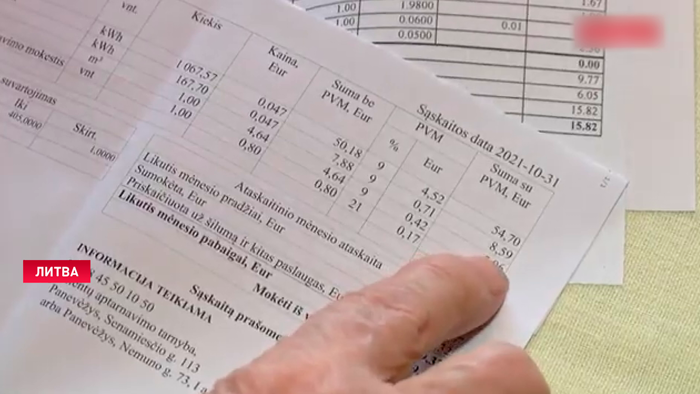 1.00 1.9800 1.67
1.00 0.0600 0.01
0.0500
0.00
9.77
6.05
15.82
15.82
vnt. Kiekis Kaina, Eur Suma be PVM, Eur % PVM Eur Suma su PVM, Eur
Sąskaitos data 2021-10-31
kWh 1 067,57 0,047 50,18 9 4,52 54,70
kWh 167,70 0,047 7,88 9 0,71 8,59
m³ 1,00 4,64 4,64 9 0,42
vnt 1,00 0,80 0,80 21 0,17
mokestis
suvartojimas
Iki Skirt.
405,0000 1,0000
Ataskaitinio mėnesio ataskaita
Likutis mėnesio pradžiai, Eur
Sumokėta, Eur
Priskaičiuota už šilumą ir kitas paslaugas, Eur
Likutis mėnesio pabaigai, Eur
Mokėti iš
INFORMACIJA TEIKIAMA
Sąskaitą prašome
45 50 10 50
aptarnavimo tarnyba,
Panevėžys, Senamiesčio g. 113
arba Panevėžys, Nemuno g. 73, I a
ЛИТВА